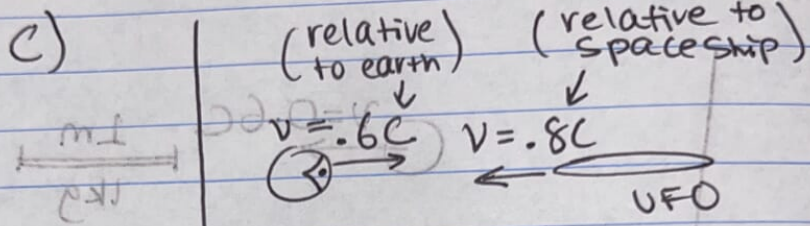 C)
(relative to earth)
(relative to spaceship)
v = .6C
V = .8C
UFO